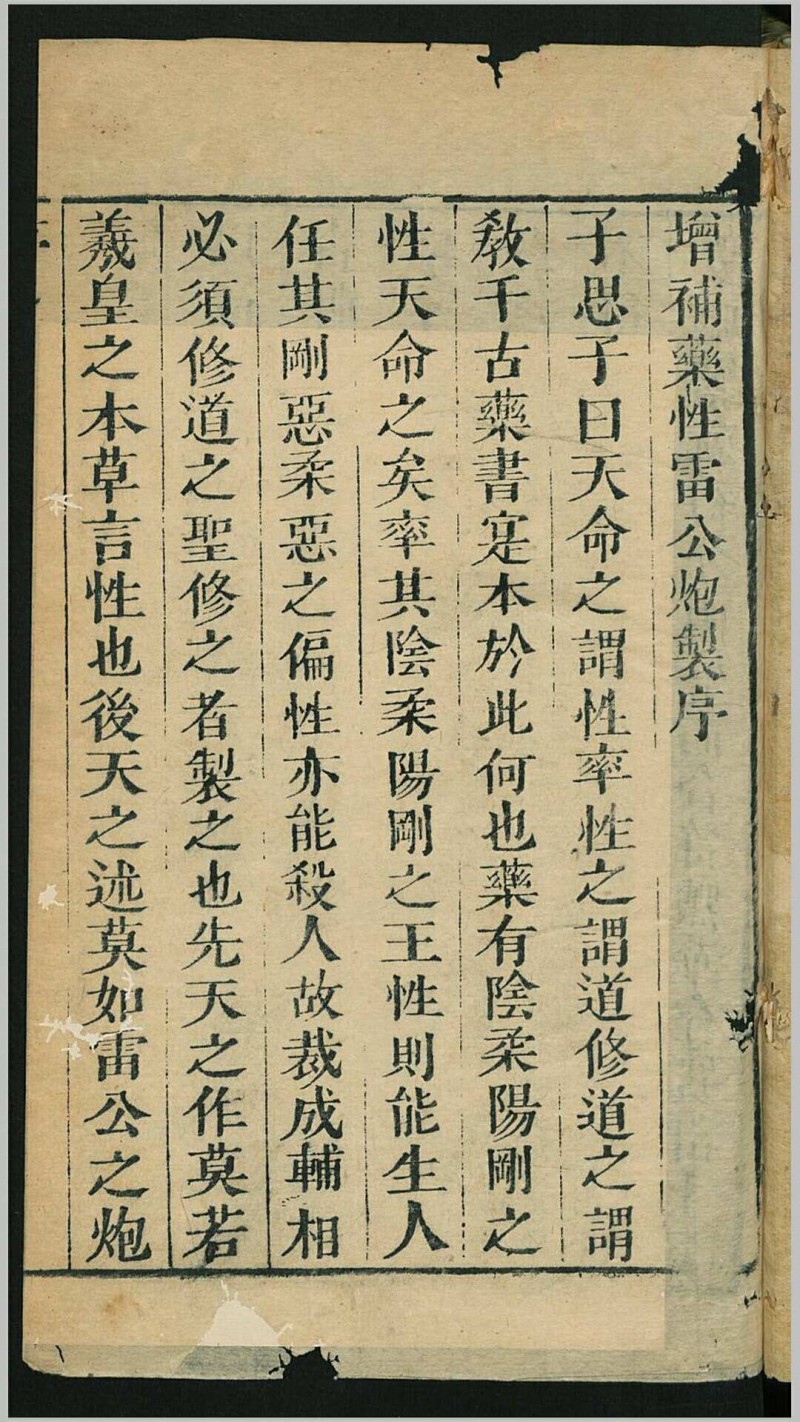 增補藥性雷公炮製序
子思子曰天命之謂性率性之謂道修道之謂
敎千古藥書寔本於此何也藥有陰柔陽剛之
性天命之矣率其陰柔陽剛之王性則能生人
任其剛惡柔惡之偏性亦能殺人故裁成輔相
必須修道之聖修之者製之也先天之作莫若
羲皇之本草言性也後天之述莫如雷公之炮